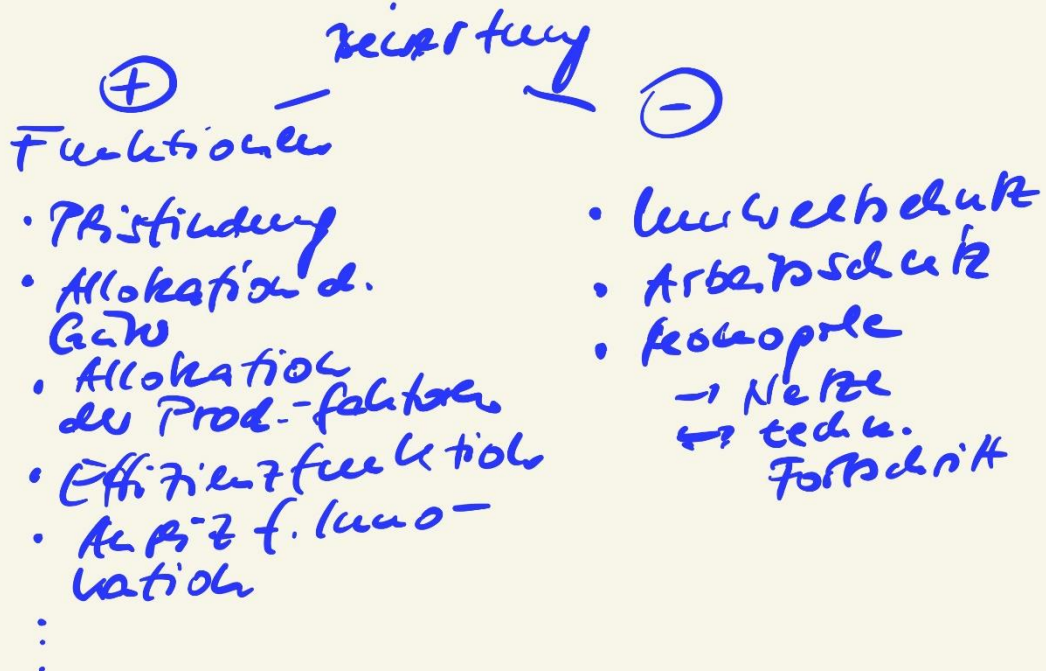 Bewertung
+
-
Funktionen
• Preisfindung
• Allokation d.
Güter
• Allokation
der Prod.-faktoren
• Effizienzfunktion
• Anreiz f. Inno-
vation
• Umweltschutz
• Arbeitsschutz
• Monopole
→ Netze
↔ techn.
Fortschritt